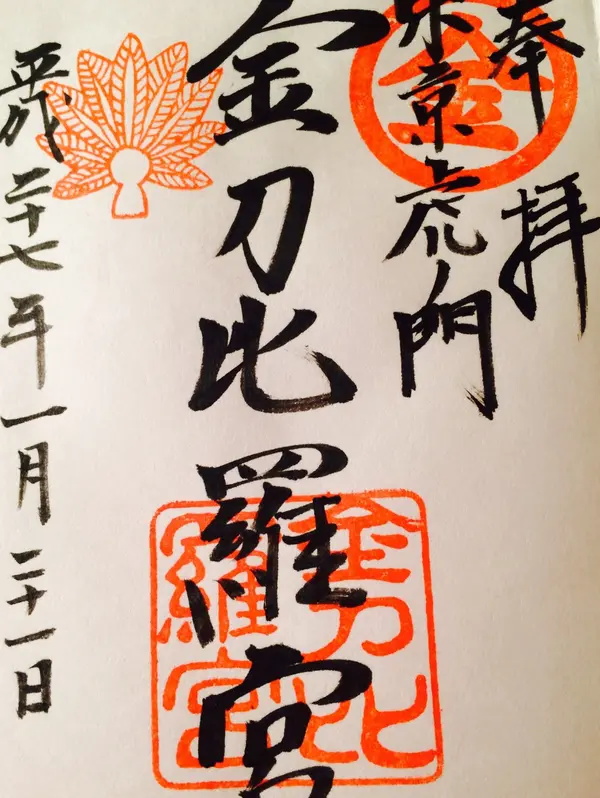 奉拝
東京虎ノ門
金刀比羅宮
平成二十七年一月二十一日
金
金刀比羅宮